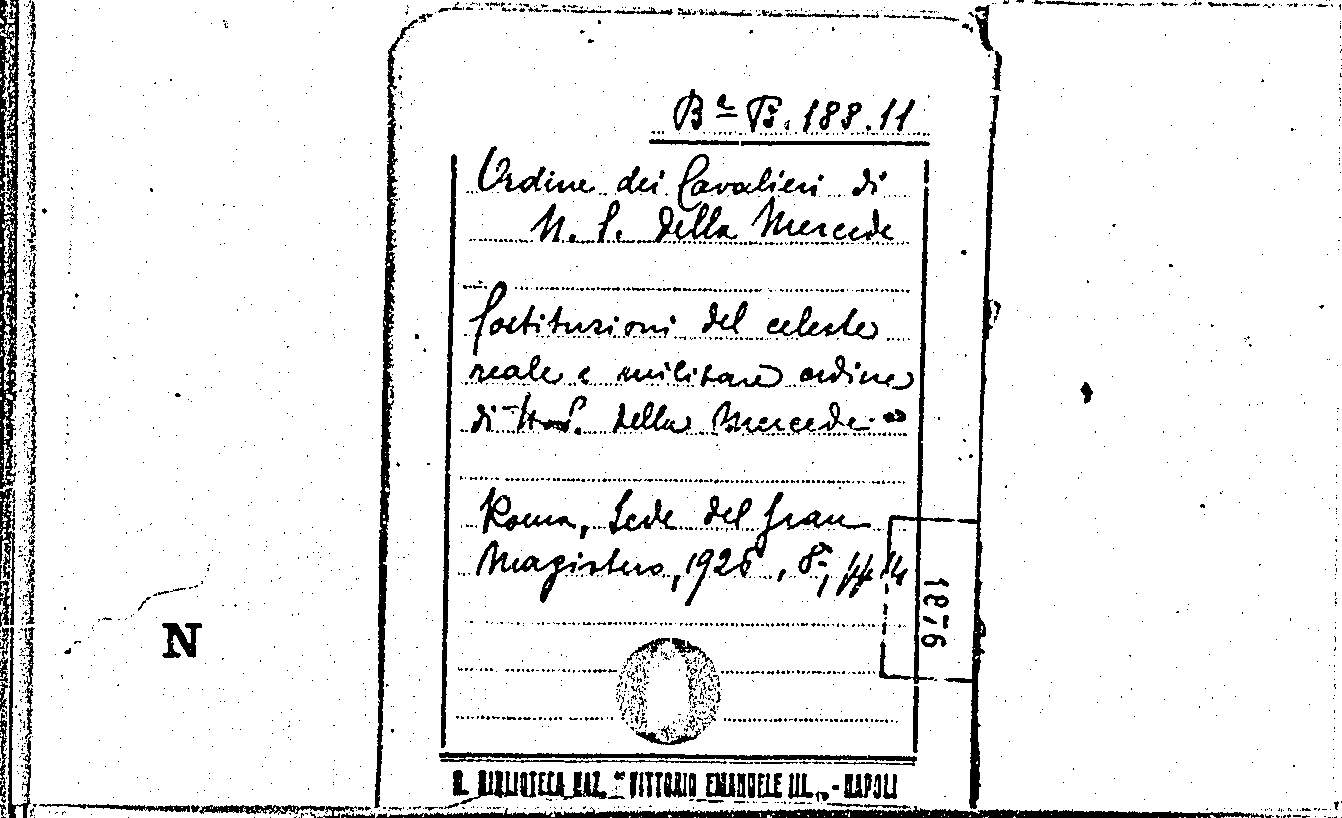 Bª B. 188.11
Ordine dei Cavalieri di
N. S. della Mercede
Costituzioni del celeste
reale e militare ordine
di N. S. della Mercede
Roma, Sede del Gran
Magistero, 1925, 8º, pp
1876
N
R. BIBLIOTECA NAZ. "VITTORIO EMANUELE III" - NAPOLI